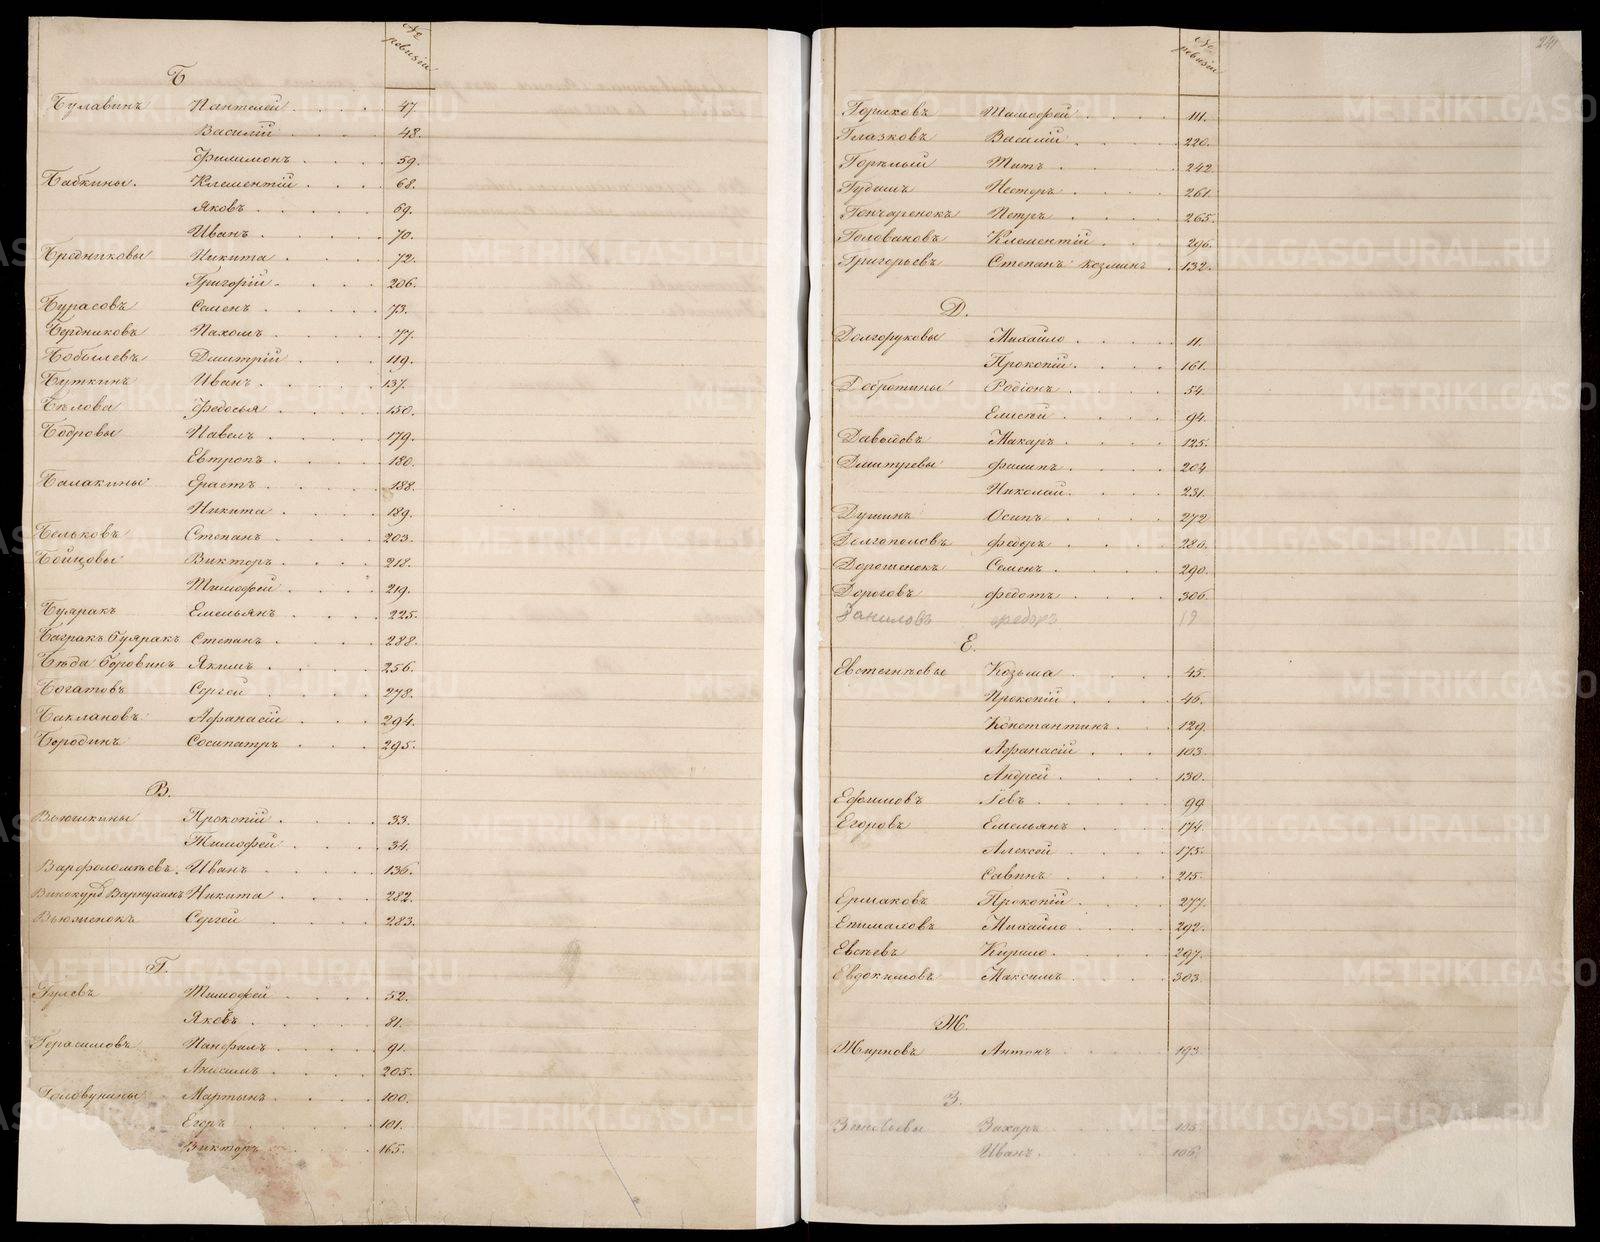 № ревизіи
Б
Булавинъ Пантелей 47.
Василій 48.
Филимонъ 59.
Бабкины. Клементій 68.
Яковъ 69.
Иванъ 70.
Бредниковы Никита 72.
Григорій 206.
Бурасовъ Семенъ 73.
Бердниковъ Пахомъ 77.
Бобылевъ Дмитрій 119.
Буткинъ Иванъ 137.
Бѣлова Федосья 150.
Бобровы Павелъ 179.
Евтропъ 180.
Балакины Ерастъ 188.
Никита 189.
Бельковъ Степанъ 203.
Бойцовы Викторъ 218.
Тимофей 219.
Буяракъ Емельянъ 225.
Баграк. Буяракъ Степанъ 288.
Бѣда Боровинъ Якимъ 256.
Богатовъ Сергей 278.
Баклановъ Афанасій 294.
Бородинъ Сосипатръ 295.
В.
Вьюшкины Прокопій 33.
Тимофей 34.
Варфоломѣевъ. Иванъ 136.
Никита 282.
Вьюженокъ Сергей 283.
Г.
Гулевъ Тимофей 52.
Яковъ 81.
Герасимовъ Панфилъ 91.
Анисимъ 205.
Головунины Мартынъ 100.
Егоръ 101.
Викторъ 165.
241
№ ревизіи
Горшковъ Тимофей 111.
Глазковъ Василій 220.
Горѣлый Титъ 242.
Гудимъ Несторъ 261.
Гончаренокъ Петръ 265.
Головановъ Клементій 296.
Григорьевъ Степанъ Козминъ 132.
Д.
Долгоруковы Михайло 11.
Прокопій 161.
Добротины Родіонъ 54.
Елисѣй 94.
Давыдовъ Макаръ 125.
Дмитріевы Филипъ 204.
Николай 231.
Душинъ Осипъ 272
Долгополовъ Федоръ 280.
Дорошенокъ Семенъ 290.
Дороговъ Федотъ 306.
Даниловъ Федоръ 19
Е.
Евстегнѣевы Козьма 45.
Прокопій 46.
Константинъ 129.
Афанасій 103.
Андрей 130.
Ефимовъ Левъ 99
Егоровъ Емельянъ 174.
Алексей 175.
Савинъ 215.
Ермаковъ Прокопій 277.
Епимаховъ Михайло 292.
Евсѣевъ Кирило 297.
Евдокимовъ Максимъ 303.
Ж.
Жирновъ Антонъ 193
З.
Зиновьевы Захаръ 105.
Иванъ 106.
METRIKI.GASO-URAL.RU